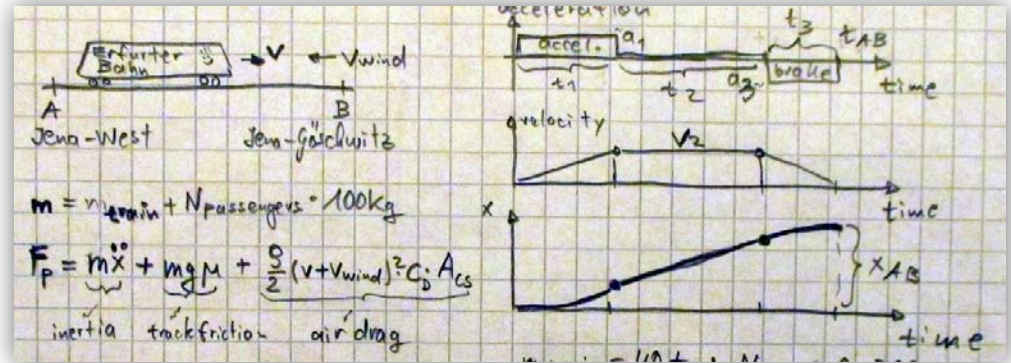 Erfurter
Bahn
→ V ← Vwind
A B
Jena-West Jena-Göschwitz
m = mtrain + Npassengers · 100kg
Fp = mẍ + mgμ + ρ/2 (v+Vwind)² · CD ACS
inertia track friction air drag
acceleration
accel. a1 t3 tAB
t1 t2 a3 brake time
velocity
V2
time
x
xAB
time